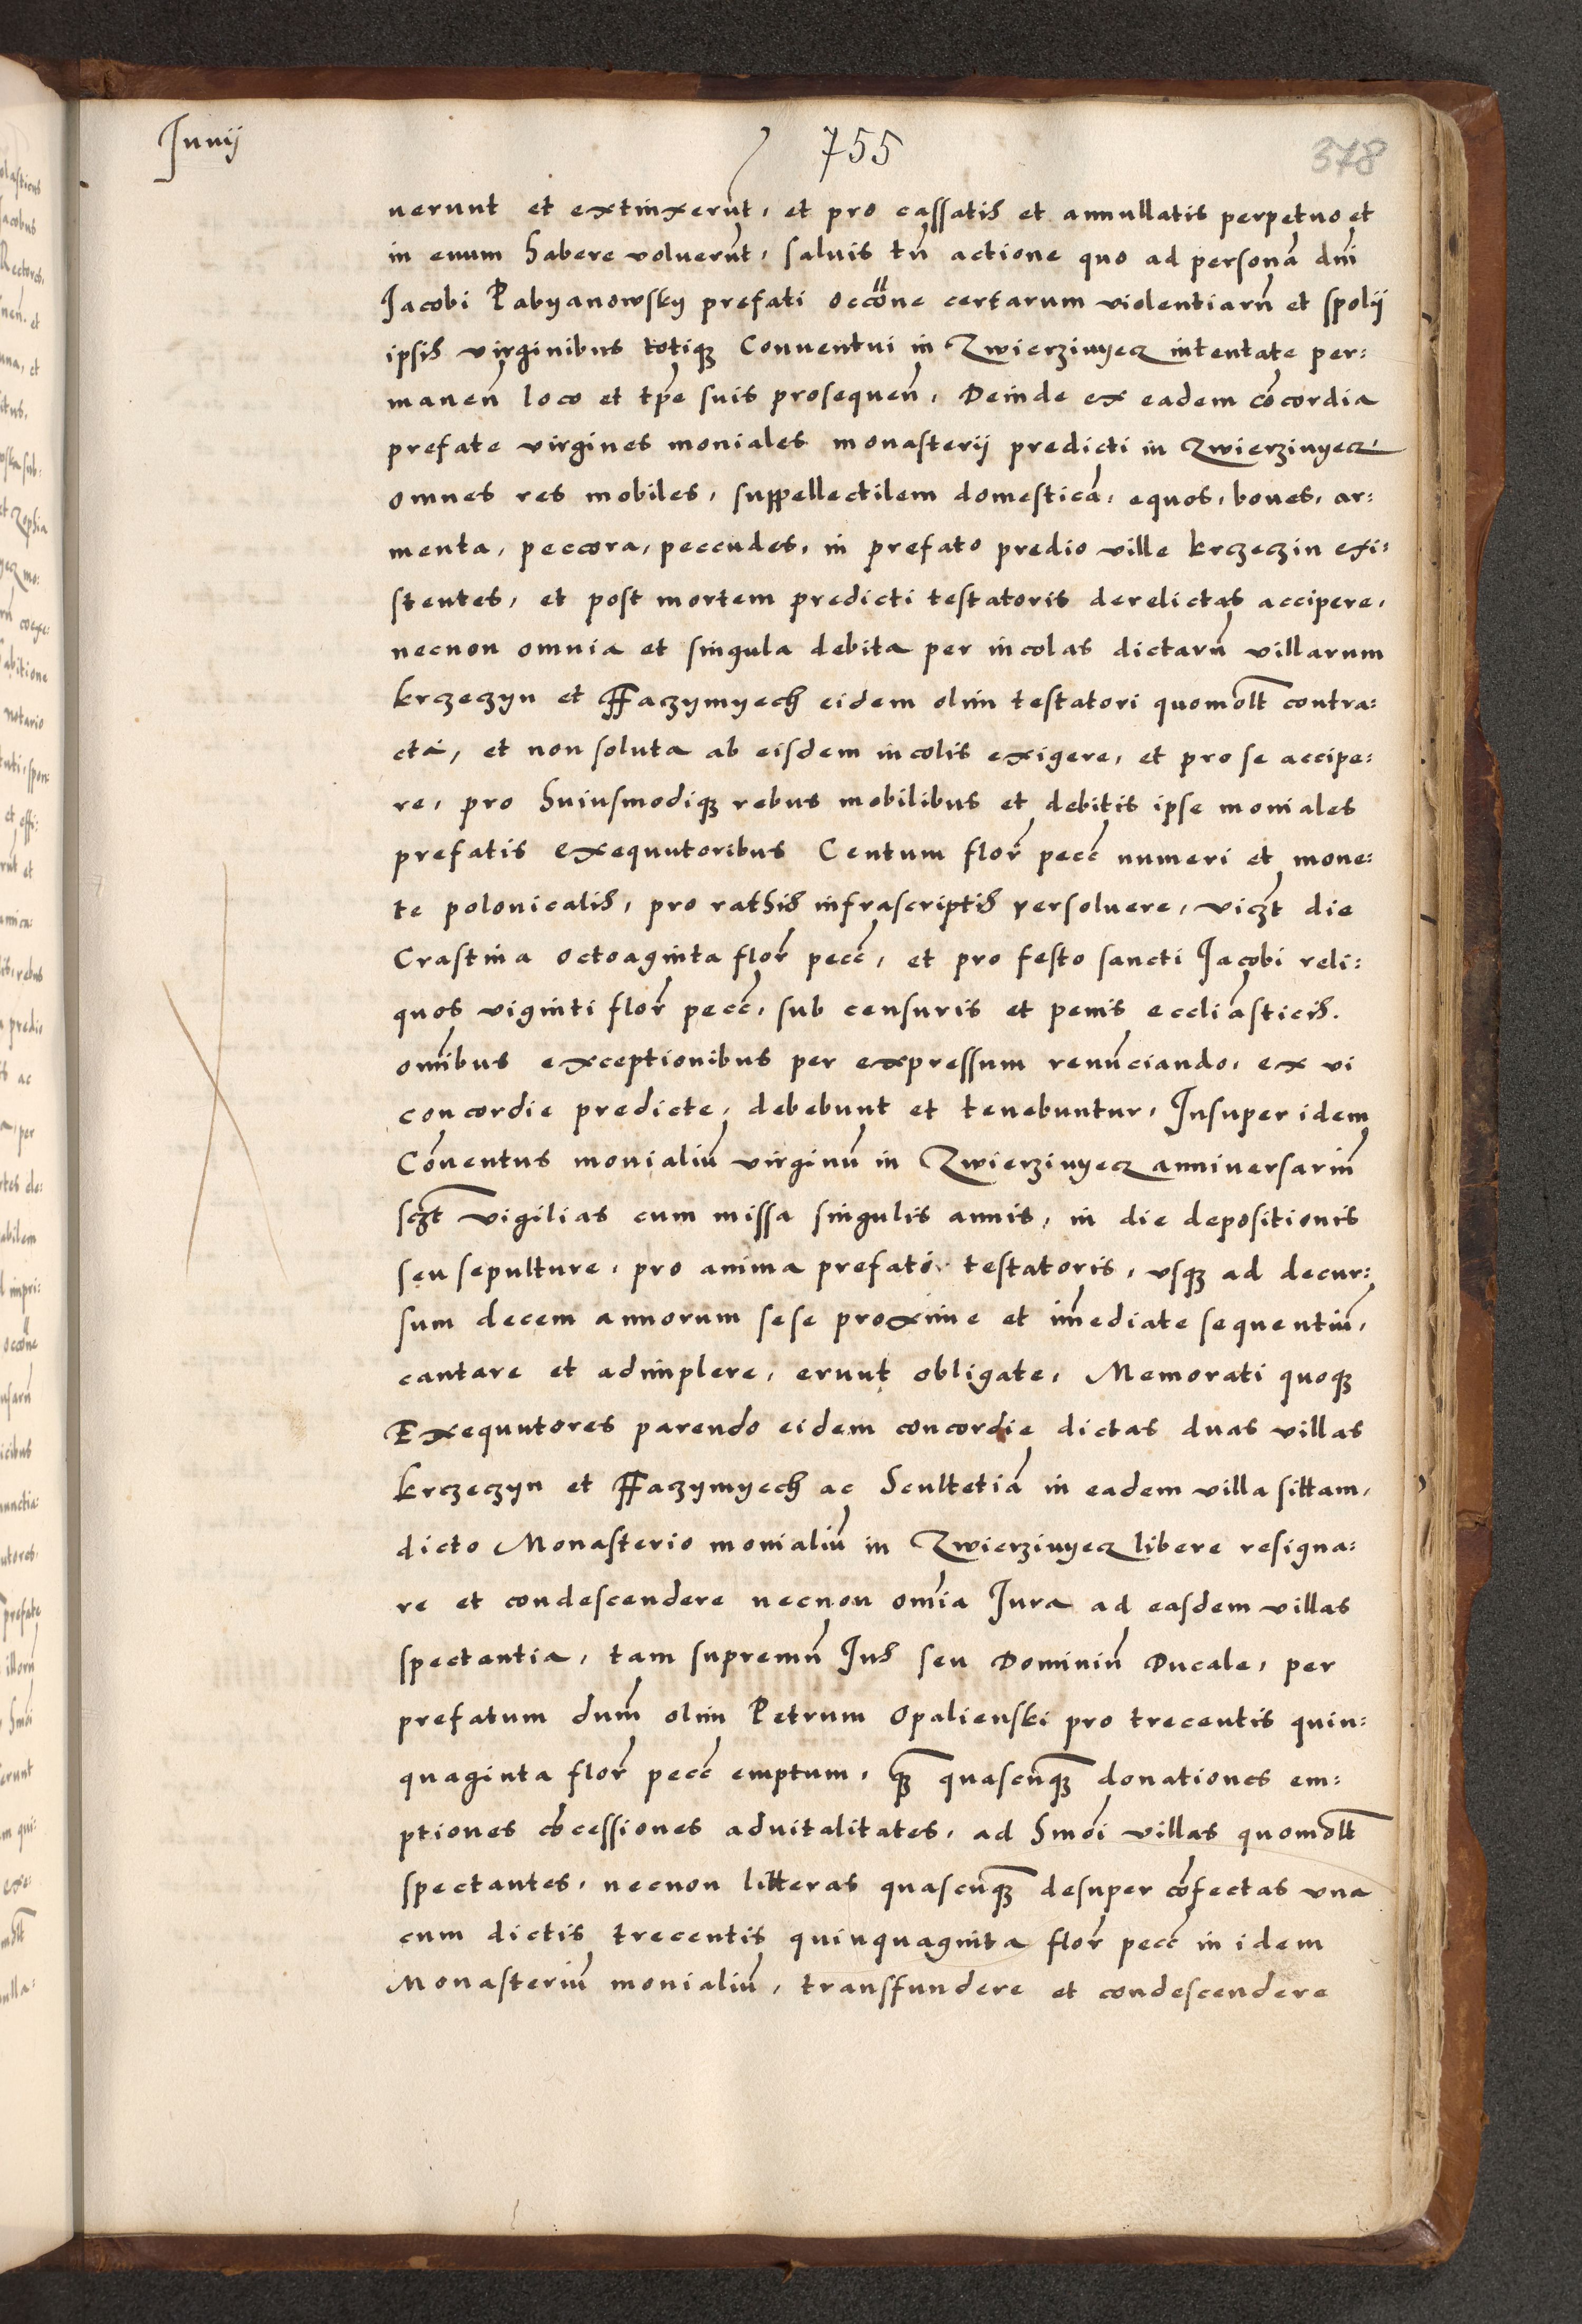 Junij
755
378
uerunt et extinxerūt, et pro cassatis et annullatis perpetuo et
in euum habere voluerūt, saluis tn̄ actione quo ad personā dn̄i
Jacobi Pabyanowsky prefati occōne certarum violentiarū et spolij
ipsis virginibus totiqꝫ Conuentui in Zwierzinyecz intentate per:
manen̄ loco et tp̄e suis prosequen̄, Deinde ex eadem cōcordia
prefate virgines moniales monasterij predicti in Zwierzinyecz,
omnes res mobiles, suppellectilem domesticā, equos, boues, ar:
menta, peccora, peccudes, in prefato predio ville krzeczin exi:
stentes, et post mortem predicti testatoris derelictas accipere,
necnon omnia et singula debita per incolas dictarū villarum
krzeczyn et Ffaczymyech eidem olim testatori quomoƚt contra:
cta, et non soluta ab eisdem incolis exigere, et pro se accipe:
re, pro huiusmodiqꝫ rebus mobilibus et debitis ipse moniales
prefatis exequutoribus Centum flor̄ pecc̄ numeri et mone:
te polonicalis, pro rathis infrascriptis persoluere, viczt die
Crastina octoaginta flor̄ pecc̄, et pro festo sancti Jacobi reli:
quos viginti flor̄ pecc̄, sub censuris et penis eccliāsticis.
omībus exceptionibus per expressum renūciando, ex vi
concordie predicte, debebunt et tenebuntur, Insuper idem
Cōuentus monialiū virginū in Zwierzinyecz anniuersariū
sczt̄ vigilias cum missa singulis annis, in die depositionis
seu sepulture, pro anima prefati testatoris, vsqꝫ ad decur:
sum decem annorum sese proxime et im̄ediate sequentiū,
cantare et adimplere, erunt obligate, Memorati quoqꝫ
Exequutores parendo eidem concordie dictas duas villas
krzeczyn et Ffaczymyech ac Scultetiā in eadem villa sittam,
dicto Monasterio monialiū in Zwierzinyecz libere resigna:
re et condescendere necnon om̄ia Jura ad easdem villas
spectentia, tam supremū Jus seu Dominiū Ducale, per
prefatum dnm̄ olim Petrum Opalienski pro trecentis quin:
quaginta flor̄ pecc̄ emptum, qꝫ̄ quascūqꝫ donationes em:
ptiones cōcessiones aduitalitates, ad hmōi villas quomoƚt
spectantes, necnon litteras quascūqꝫ desuper cōfectas vna
cum dictis trecentis quinquaginta flor̄ pecc̄ in idem
Monasteriū monialiū, transfundere et condescendere